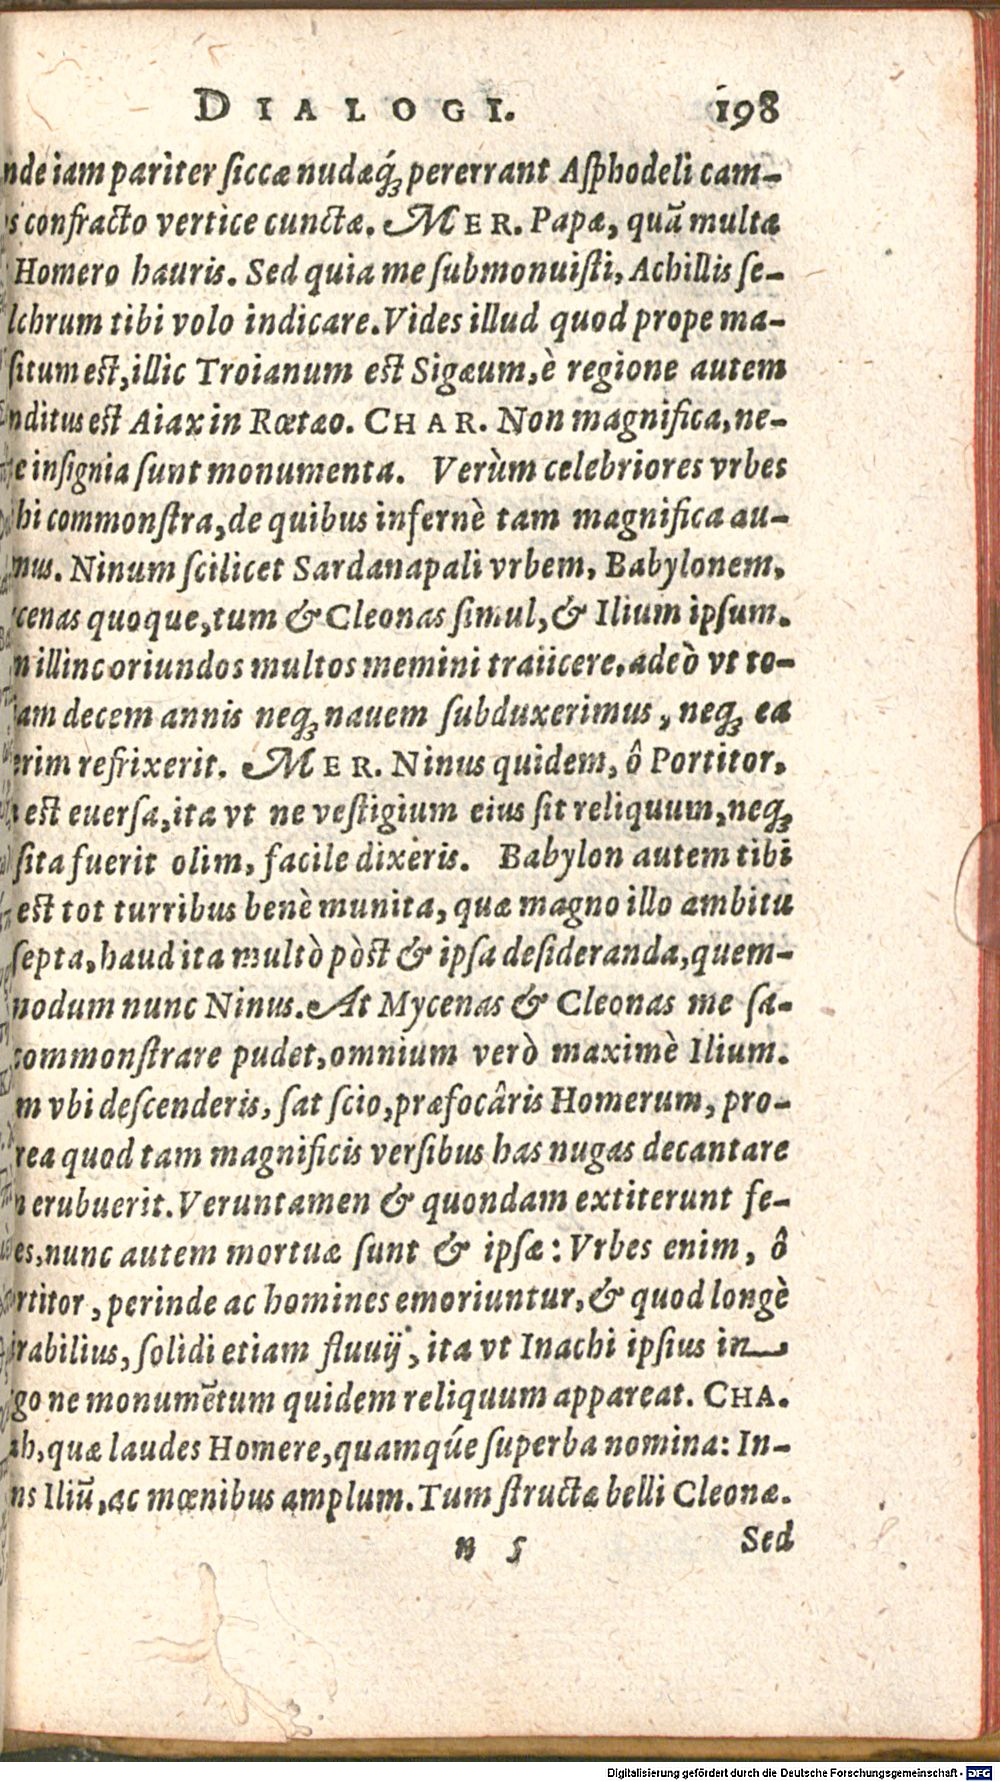 DIALOGI. 198
nde iam pariter siccæ nudæq́; pererrant Asphodeli cam-
s confracto vertice cunctæ. MER. Papæ, quã multa
Homero hauris. Sed quia me submonuisti, Achillis se-
lchrum tibi volo indicare. Vides illud quod prope ma-
situm est, illic Troianum est Sigæum, è regione autem
nditus est Aiax in Rœtæo. CHAR. Non magnifica, ne-
e insignia sunt monumenta. Verùm celebriores vrbes
hi commonstra, de quibus infernè tam magnifica au-
mus. Ninum scilicet Sardanapali vrbem, Babylonem,
cenas quoque, tum & Cleonas simul, & Ilium ipsum.
n illinc oriundos multos memini traiicere, adeò vt to-
iam decem annis neq; nauem subduxerimus, neq; ea
erim refrixerit. MER. Ninus quidem, ô Portitor,
est euersa, ita vt ne vestigium eius sit reliquum, neq;
sita fuerit olim, facile dixeris. Babylon autem tibi
est tot turribus benè munita, quæ magno illo ambitu
septa, haud ita multò pòst & ipsa desideranda, quem-
modum nunc Ninus. At Mycenas & Cleonas me sa-
commonstrare pudet, omnium verò maximè Ilium.
m vbi descenderis, sat scio, præfocâris Homerum, pro-
rea quod tam magnificis versibus has nugas decantare
n erubuerit. Veruntamen & quondam extiterunt fe-
es, nunc autem mortuæ sunt & ipsæ: Vrbes enim, ô
rtitor, perinde ac homines emoriuntur, & quod longè
irabilius, solidi etiam fluuij, ita vt Inachi ipsius in
go ne monumẽtum quidem reliquum appareat. CHA.
ah, quæ laudes Homere, quamqúe superba nomina: In-
ns Iliũ, ac mœnibus amplum. Tum structæ belli Cleonæ.
n 5 Sed
Digitalisierung gefördert durch die Deutsche Forschungsgemeinschaft - DFG